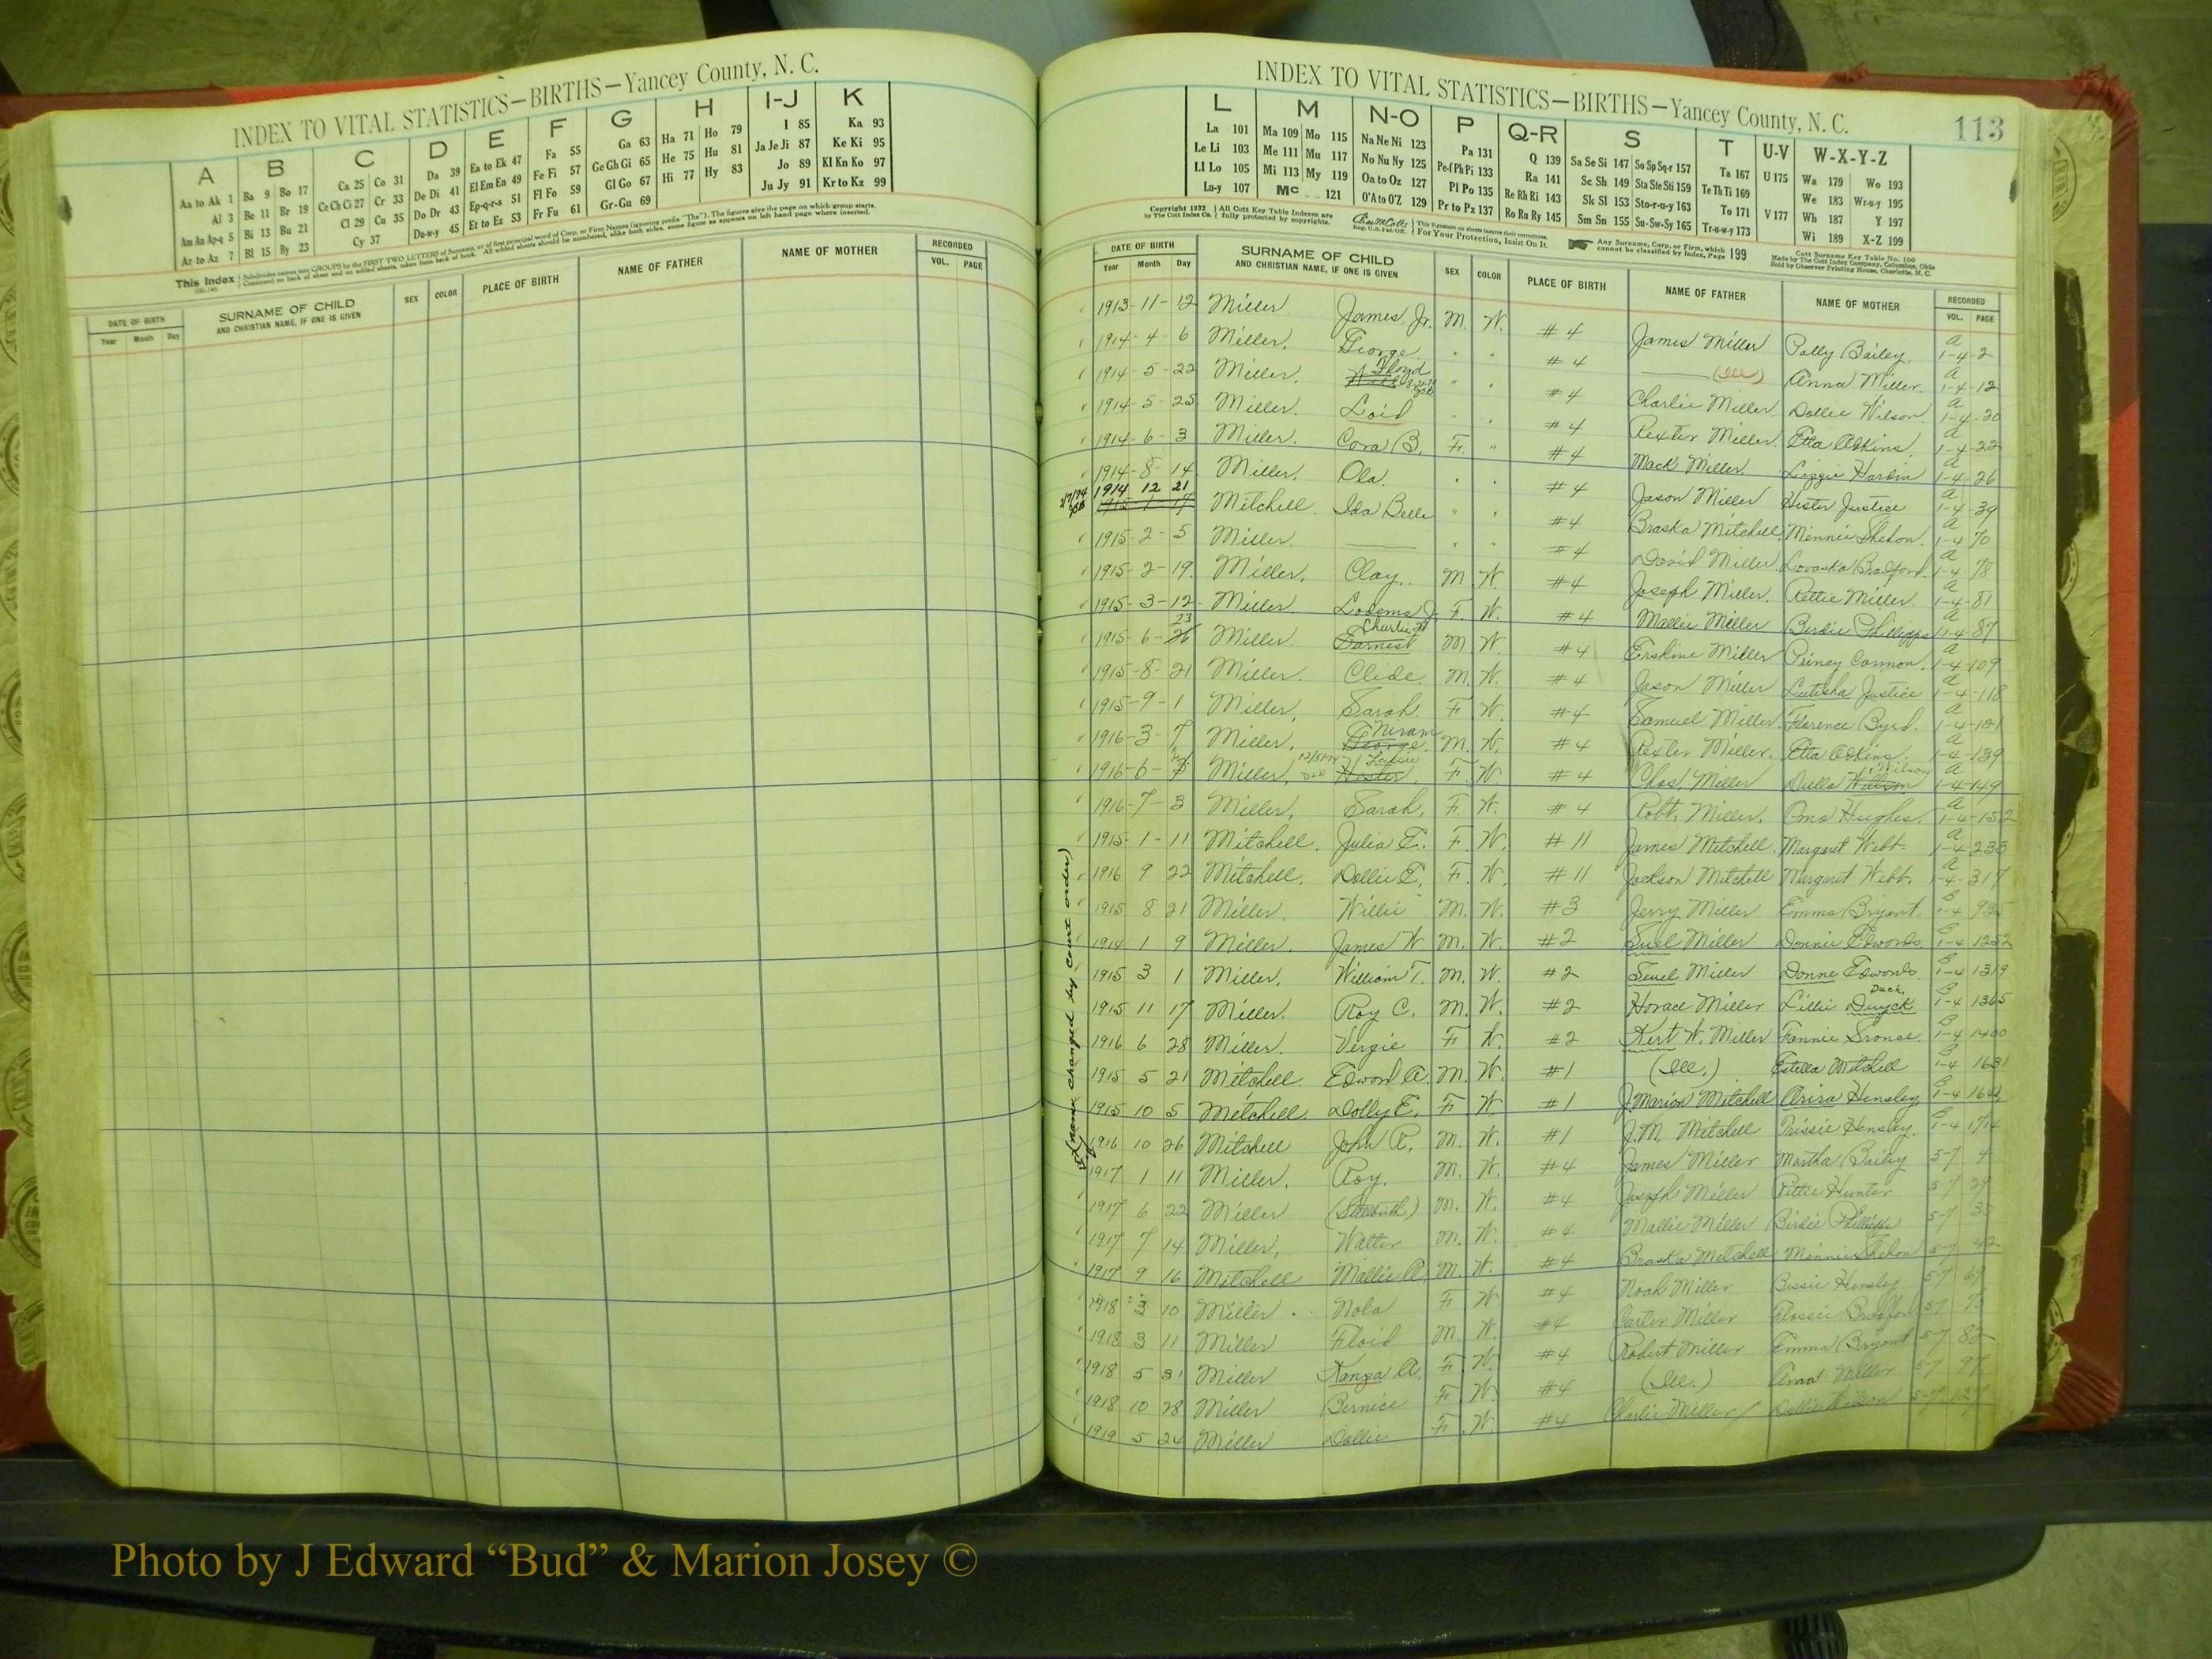 INDEX TO VITAL STATISTICS—BIRTHS—Yancey County, N. C.
A B C D E F G H I-J K
Aa to Ak 1 Ba 9 Bo 17 Ca 25 Co 31 Da 39 Ea to Ek 47 Fa 55 Ga 63 Ha 71 Ho 79 I 85 Ka 93
Al 3 Be 11 Br 19 Ce Ch Ci 27 Cr 33 De Di 41 El Em En 49 Fe Fi 57 Ge Gh Gi 65 He 75 Hu 81 Ja Je Ji 87 Ke Ki 95
Am An Ap-q 5 Bi 13 Bu 21 Cl 29 Cu 35 Do Dr 43 Ep-q-r-s 51 Fl Fo 59 Gl Go 67 Hi 77 Hy 83 Jo 89 Kl Kn Ko 97
Ar to Az 7 Bl 15 By 23 Cy 37 Du-w-y 45 Et to Ez 53 Fr Fu 61 Gr-Gu 69 Ju Jy 91 Kr to Kz 99
This Index
DATE OF BIRTH Year Month Day
SURNAME OF CHILD AND CHRISTIAN NAME, IF ONE IS GIVEN
SEX COLOR PLACE OF BIRTH NAME OF FATHER NAME OF MOTHER RECORDED VOL. PAGE
INDEX TO VITAL STATISTICS—BIRTHS—Yancey County, N. C. 113
L M N-O P Q-R S T U-V W-X-Y-Z
La 101 Ma 109 Mo 115 Na Ne Ni 123 Pa 131 Q 139 Sa Se Si 147 So Sp Sq-r 157 Ta 167 U 175 Wa 179 Wo 193
Le Li 103 Me 111 Mu 117 No Nu Ny 125 Pe-f Ph Pi 133 Ra 141 Sc Sh 149 Sta Ste Sti 159 Te Th Ti 169 We 183 Wr-u-y 195
Ll Lo 105 Mi 113 My 119 Oa to Oz 127 Pl Po 135 Re Rh Ri 143 Sk Sl 153 Sto-r-u-y 163 To 171 V 177 Wh 187 Y 197
Lu-y 107 Mc 121 O'A to O'Z 129 Pr to Pz 137 Ro Ru Ry 145 Sm Sn 155 Su-Sw-Sy 165 Tr-u-w-y 173 Wi 189 X-Z 199
Copyright 1932 by The Cott Index Co. All Cott Key Table Indexes are fully protected by copyrights.
For Your Protection, Insist On It.
Any Surname, Corp. or Firm, which cannot be classified by Index, Page 199
Cott Surname Key Table No. 100 Made by The Cott Index Company, Columbus, Ohio Sold by Observer Printing House, Charlotte, N. C.
DATE OF BIRTH Year Month Day
SURNAME OF CHILD AND CHRISTIAN NAME, IF ONE IS GIVEN
SEX COLOR PLACE OF BIRTH NAME OF FATHER NAME OF MOTHER RECORDED VOL. PAGE
1913-11-12 Miller James, Jr. M. W. #4 James Miller Polly Bailey. A 1-4-2
1914-4-6 Miller, George. " " #4 (Ill) Anna Miller. A 1-4-12
1914-5-22 Miller. Floyd " " #4 Charlie Miller. Dollie Wilson. A 1-4-20
1914-5-25 Miller. Loid " " #4 Rexter Miller. Etta Adkins. A 1-4-22
1914-6-3 Miller. Cora B. F. " #4 Mack Miller Lizzie Hardin A 1-4-26
1914-8-14 Miller. Ola. " " #4 Jason Miller Hester Justice A 1-4-39
1914 12 21 Mitchell. Ida Belle " " #4 Braska Mitchell Minnie Shehon. A 1-4-70
1915-2-5 Miller. " " #4 David Miller Lovaska Bradford. A 1-4-78
1915-2-19 Miller. Clay. M. W. #4 Joseph Miller. Rettie Miller A 1-4-81
1915-3-12 Miller. Lodema J. F. W. #4 Mallie Miller Birdie Phillipps A 1-4-87
1915-6-23 Miller. Charlie Earnest M. W. #4 Erskine Miller Piney Cannon. A 1-4-109
1915-8-21 Miller. Clide. M. W. #4 Jason Miller Lutisha Justice A 1-4-118
1915-9-1 Miller, Sarah. F. W. #4 Samuel Miller. Florence Byrd. A 1-4-121
1916-3-7 Miller, Hiram George. M. W. #4 Rexter Miller. Etta Adkins. A 1-4-139
1916-6- Miller, Hester. F. W. #4 Chas. Miller Dulla Wilson A 1-4-149
1916-7-3 Miller, Sarah. F. W. #4 Robt. Miller. Oma Hughes. A 1-4-152
1915-1-11 Mitchell. Julia E. F. W. #11 James Mitchell. Margaret Webb A 1-4-235
1916 9 22 Mitchell. Dollie E. F. W. #11 Jackson Mitchell Margaret Webb. A 1-4-317
1915 8 21 Miller. Willie M. W. #3 Jerry Miller Emma Bryant. B 1-4 935
1914 1 9 Miller. James W M. W. #2 Suel Miller Donnie Edwards. B 1-4 1252
1915 3 1 Miller. William T. M. W. #2 Seuel Miller Donne Edwards. B 1-4 1319
1915 11 17 Miller. Roy C. M. W. #2 Horace Miller Lillie Duyck Duck. B 1-4 1365
1916 6 28 Miller. Vergie F W. #2 Kert W. Miller Fannie Sronce. B 1-4 1400
1915 5 21 Mitchell. Edward A. M. W. #1 (Ill.) Estella Mitchell B 1-4 1631
1915 10 5 Mitchell. Dolly E. F. W #1 J. Marion Mitchell Arira Hensley. B 1-4 1641
1916 10 26 Mitchell John R. M. W. #1 J.M. Mitchell Trissie Hensley. B 1-4 1714
1917 1 11 Miller. Roy. M. W. #4 James Miller Martha Bailey 5-7 4
1917 6 22 Miller (Stillbirth) M. W. #4 Joseph Miller Rittie Hunter 5-7 29
1917 7 14 Miller, Walter M. W. #4 Mallie Miller Birdie Phillipps 5-7 33
1917 9 16 Mitchell Mallie A. M. W. #4 Braska Mitchell Minnie Shehon 5-7 42
1918 3 10 Miller Nola F W #4 Noah Miller Bessie Hensley 5-7 69
1918 3 11 Miller Floid M W. #4 Carter Miller Flossie Bradford 5-7 73
1918 5 31 Miller Kanza A. F. W. #4 Robert Miller Emma Bryant 5-7 82
1918 10 28 Miller Bernice F W. #4 (Ill.) Anna Miller 5-7 97
1919 5 24 Miller Dollie F. W. #4 Charlie Miller Dollie Wilson 5-7 127
(name changed by court order)
Photo by J Edward “Bud” & Marion Josey ©